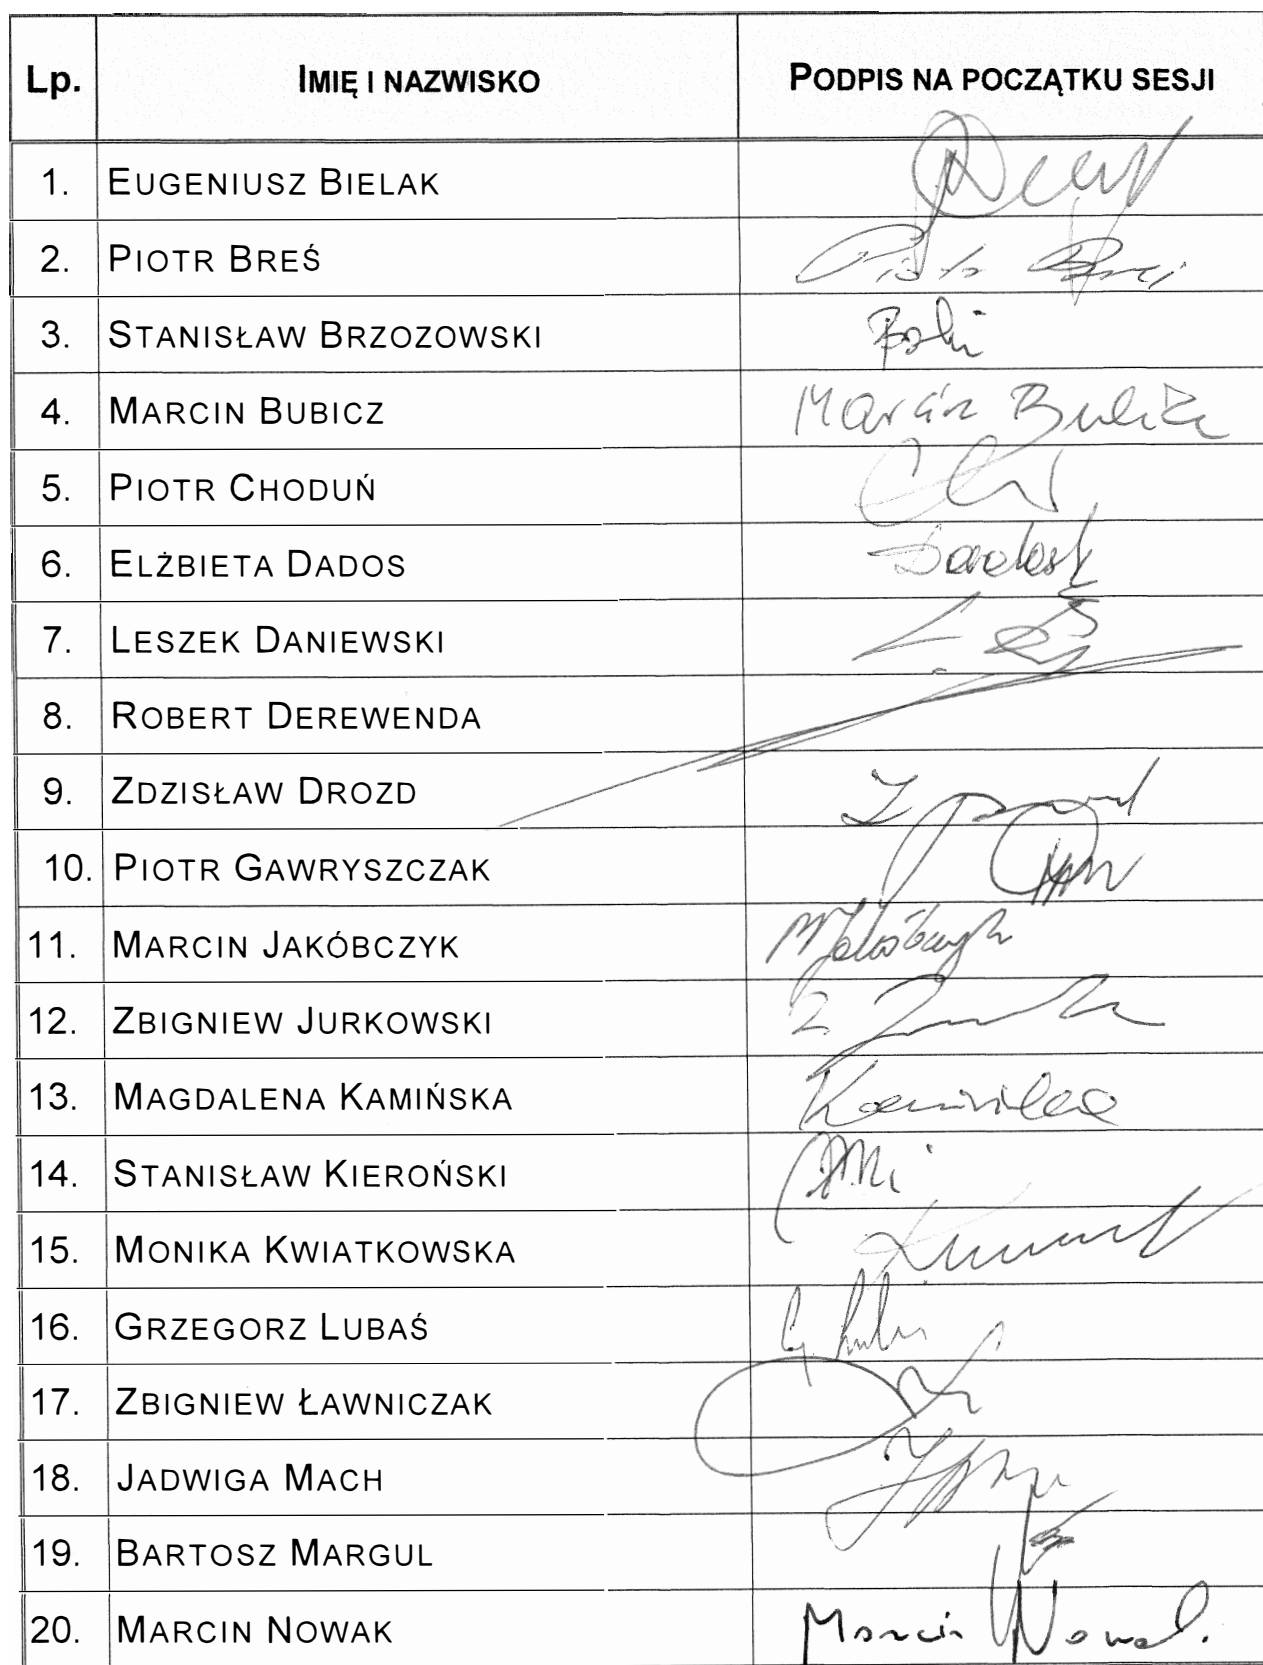 Lp. IMIĘ I NAZWISKO PODPIS NA POCZĄTKU SESJI
1. EUGENIUSZ BIELAK
2. PIOTR BREŚ Piotr Breś
3. STANISŁAW BRZOZOWSKI
4. MARCIN BUBICZ Marcin Bubicz
5. PIOTR CHODUŃ
6. ELŻBIETA DADOS
7. LESZEK DANIEWSKI
8. ROBERT DEREWENDA
9. ZDZISŁAW DROZD
10. PIOTR GAWRYSZCZAK
11. MARCIN JAKÓBCZYK MJakóbczyk
12. ZBIGNIEW JURKOWSKI
13. MAGDALENA KAMIŃSKA Kamińska
14. STANISŁAW KIEROŃSKI
15. MONIKA KWIATKOWSKA
16. GRZEGORZ LUBAŚ
17. ZBIGNIEW ŁAWNICZAK
18. JADWIGA MACH
19. BARTOSZ MARGUL
20. MARCIN NOWAK Marcin Nowak